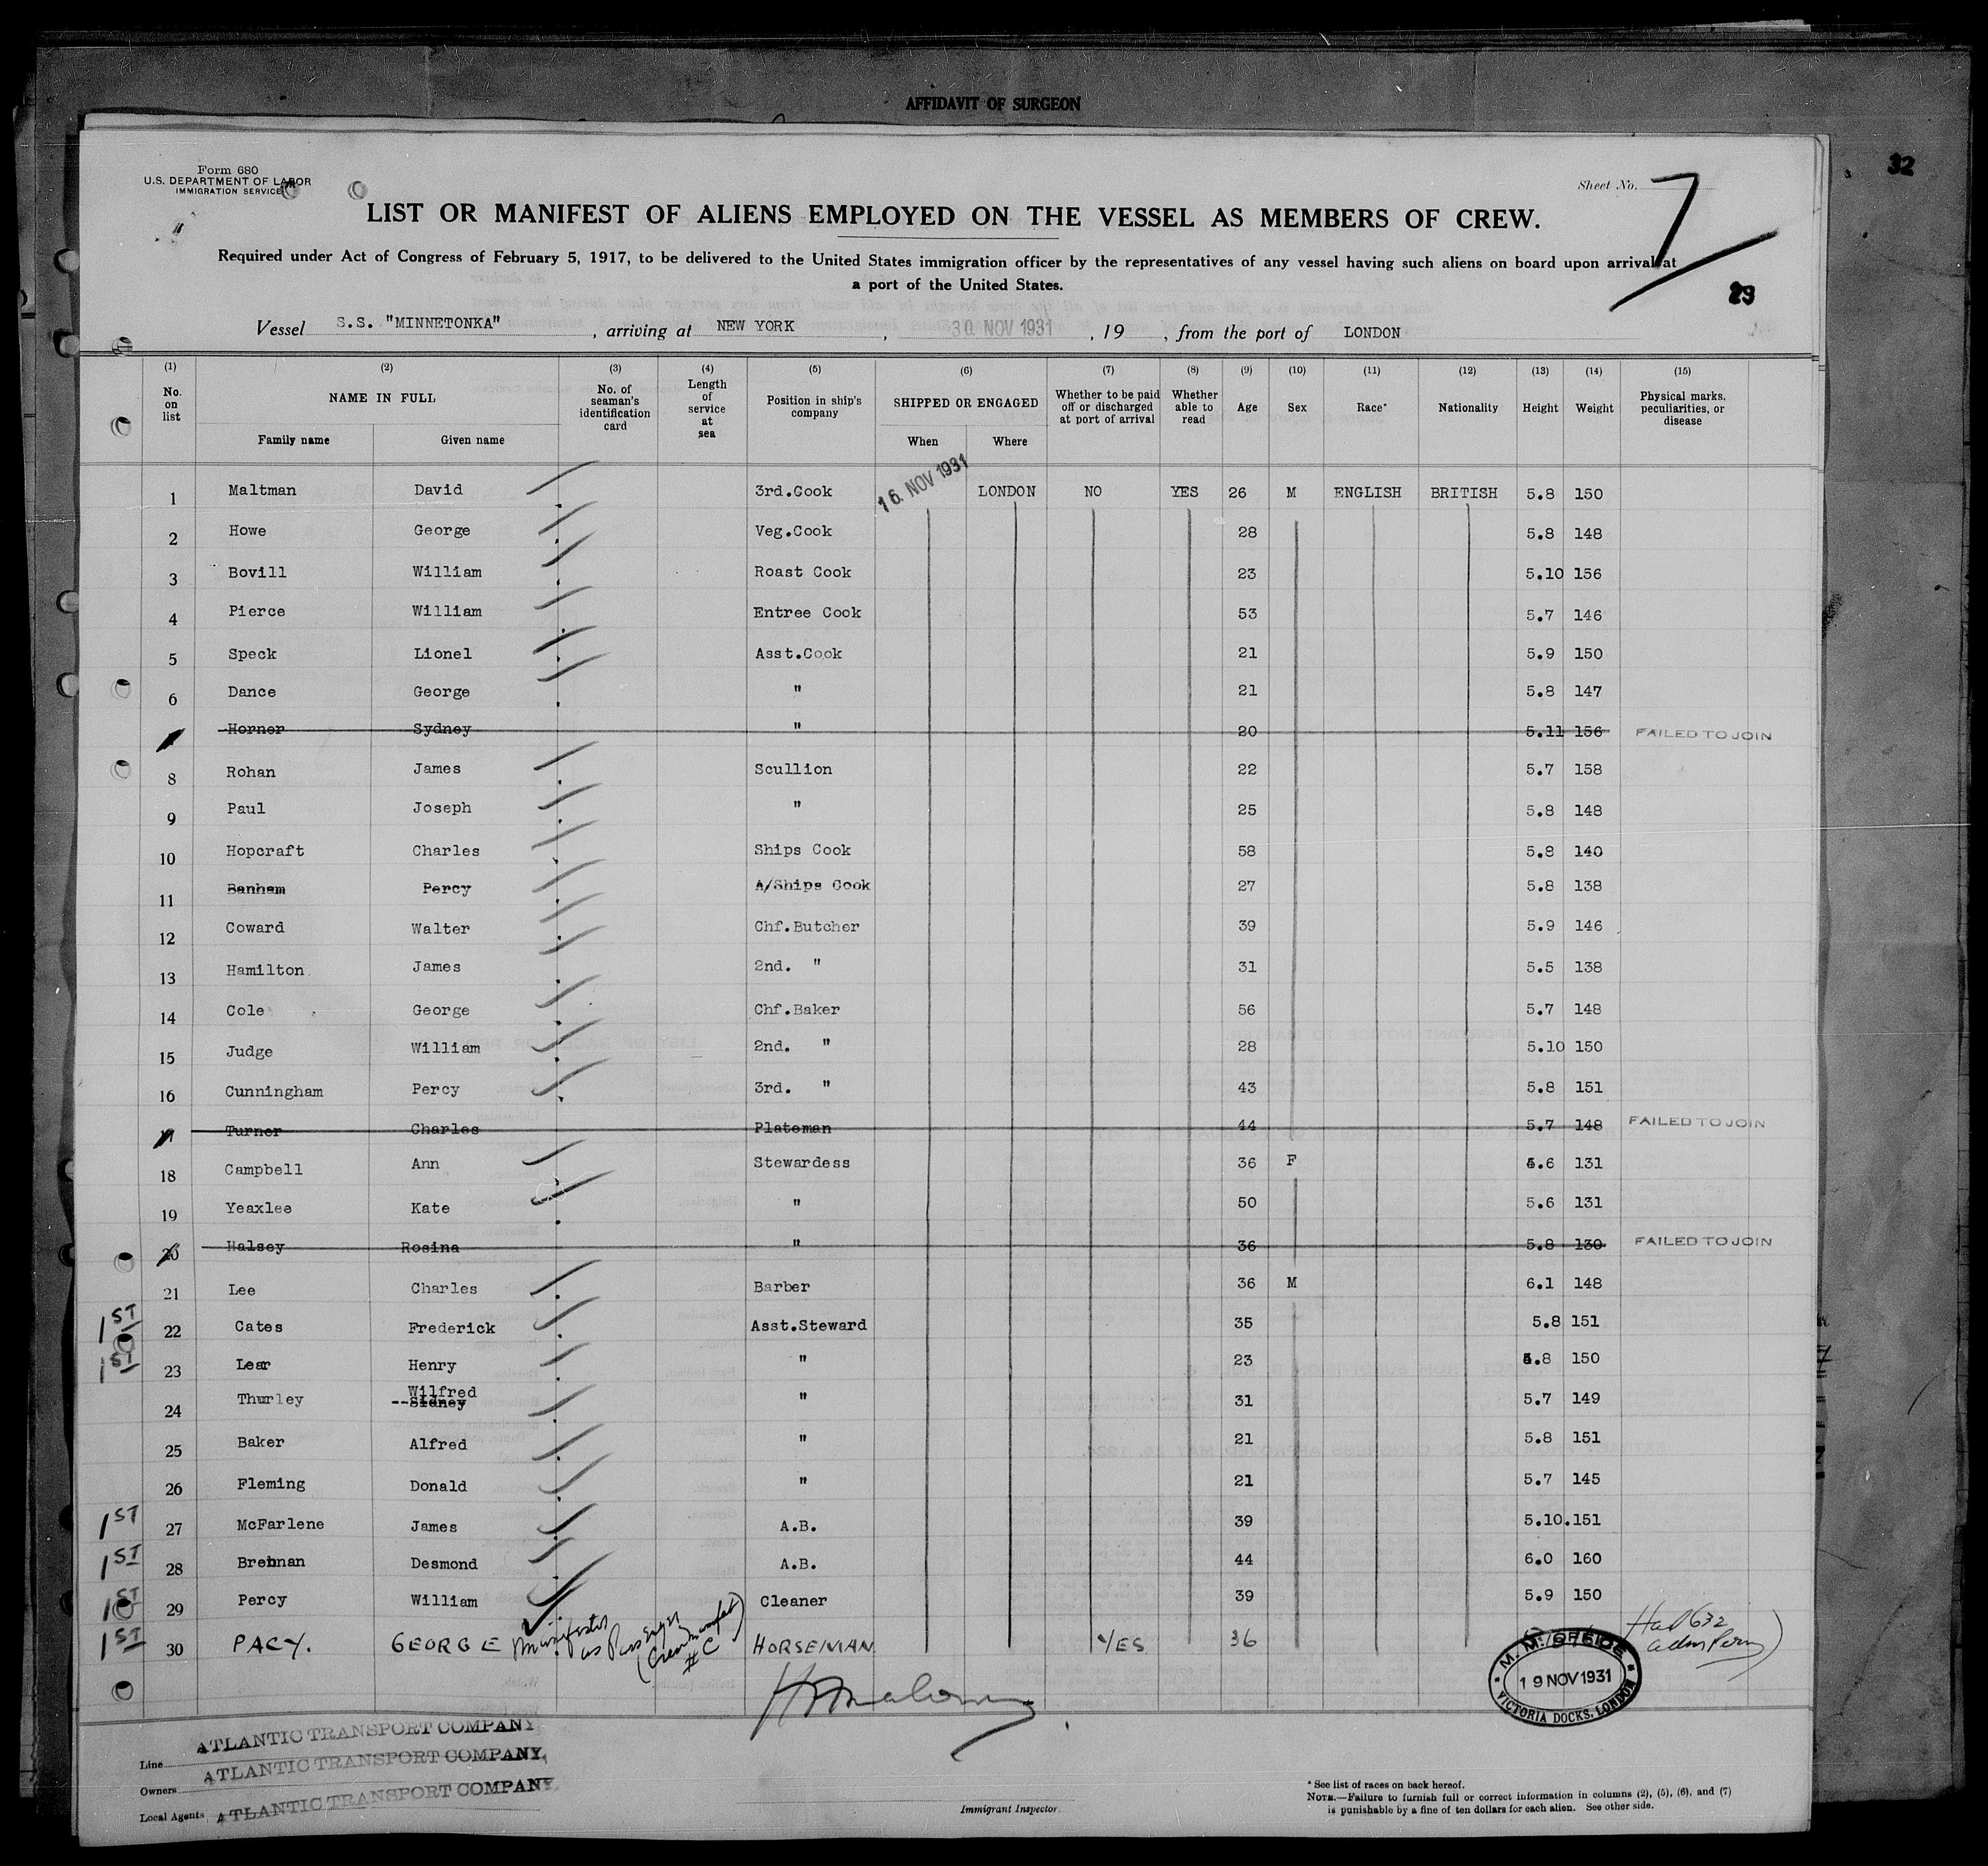 AFFIDAVIT OF SURGEON
32
Form 680
U.S. DEPARTMENT OF LABOR
IMMIGRATION SERVICE
Sheet No. 7
LIST OR MANIFEST OF ALIENS EMPLOYED ON THE VESSEL AS MEMBERS OF CREW.
Required under Act of Congress of February 5, 1917, to be delivered to the United States immigration officer by the representatives of any vessel having such aliens on board upon arrival at
a port of the United States.
29
Vessel S.S. "MINNETONKA" , arriving at NEW YORK , 30 NOV 1931 , 19 , from the port of LONDON
(1) (2) (3) (4) (5) (6) (7) (8) (9) (10) (11) (12) (13) (14) (15)
No. on list
NAME IN FULL
Family name Given name
No. of seaman's identification card
Length of service at sea
Position in ship's company
SHIPPED OR ENGAGED
When Where
Whether to be paid off or discharged at port of arrival
Whether able to read
Age Sex Race* Nationality Height Weight
Physical marks, peculiarities, or disease
1 Maltman David 3rd.Cook 16 NOV 1931 LONDON NO YES 26 M ENGLISH BRITISH 5.8 150
2 Howe George Veg.Cook 28 5.8 148
3 Bovill William Roast Cook 23 5.10 156
4 Pierce William Entree Cook 53 5.7 146
5 Speck Lionel Asst.Cook 21 5.9 150
6 Dance George " 21 5.8 147
Horner Sydney " 20 5.11 156 FAILED TO JOIN
8 Rohan James Scullion 22 5.7 158
9 Paul Joseph " 25 5.8 148
10 Hopcraft Charles Ships Cook 58 5.8 140
11 Banham Percy A/Ships Cook 27 5.8 138
12 Coward Walter Chf.Butcher 39 5.9 146
13 Hamilton James 2nd. " 31 5.5 138
14 Cole George Chf.Baker 56 5.7 148
15 Judge William 2nd. " 28 5.10 150
16 Cunningham Percy 3rd. " 43 5.8 151
17 Turner Charles Plateman 44 5.7 148 FAILED TO JOIN
18 Campbell Ann Stewardess 36 F 5.6 131
19 Yeaxlee Kate " 50 5.6 131
20 Halsey Rosina " 36 5.8 130 FAILED TO JOIN
21 Lee Charles Barber 36 M 6.1 148
1ST 22 Cates Frederick Asst.Steward 35 5.8 151
1ST 23 Lear Henry " 23 5.8 150
Wilfred
24 Thurley --Sidney " 31 5.7 149
25 Baker Alfred " 21 5.8 151
26 Fleming Donald " 21 5.7 145
1ST 27 McFarlene James A.B. 39 5.10. 151
1ST 28 Brennan Desmond A.B. 44 6.0 160
1ST 29 Percy William Cleaner 39 5.9 150
1ST 30 PACY. GEORGE Manifested as Passenger (Crew manifest #C) HORSEMAN YES 36
M. M. OFFICE
19 NOV 1931
VICTORIA DOCKS, LONDON
Line ATLANTIC TRANSPORT COMPANY
Owners ATLANTIC TRANSPORT COMPANY,
Local Agents ATLANTIC TRANSPORT COMPANY,
Immigrant Inspector.
* See list of races on back hereof.
NOTE.—Failure to furnish full or correct information in columns (2), (5), (6), and (7)
is punishable by a fine of ten dollars for each alien. See other side.